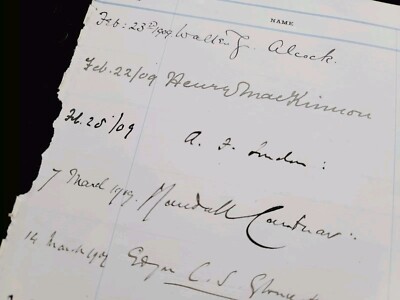 NAME
Feb: 23rd/1909 Walter G. Alcock.
Feb. 22/09 Henry MacKinnon
Feb. 28/09 A. F. London:
7 March 1909. Randall Cantuar:
14 March 1909 Edgar C. S.